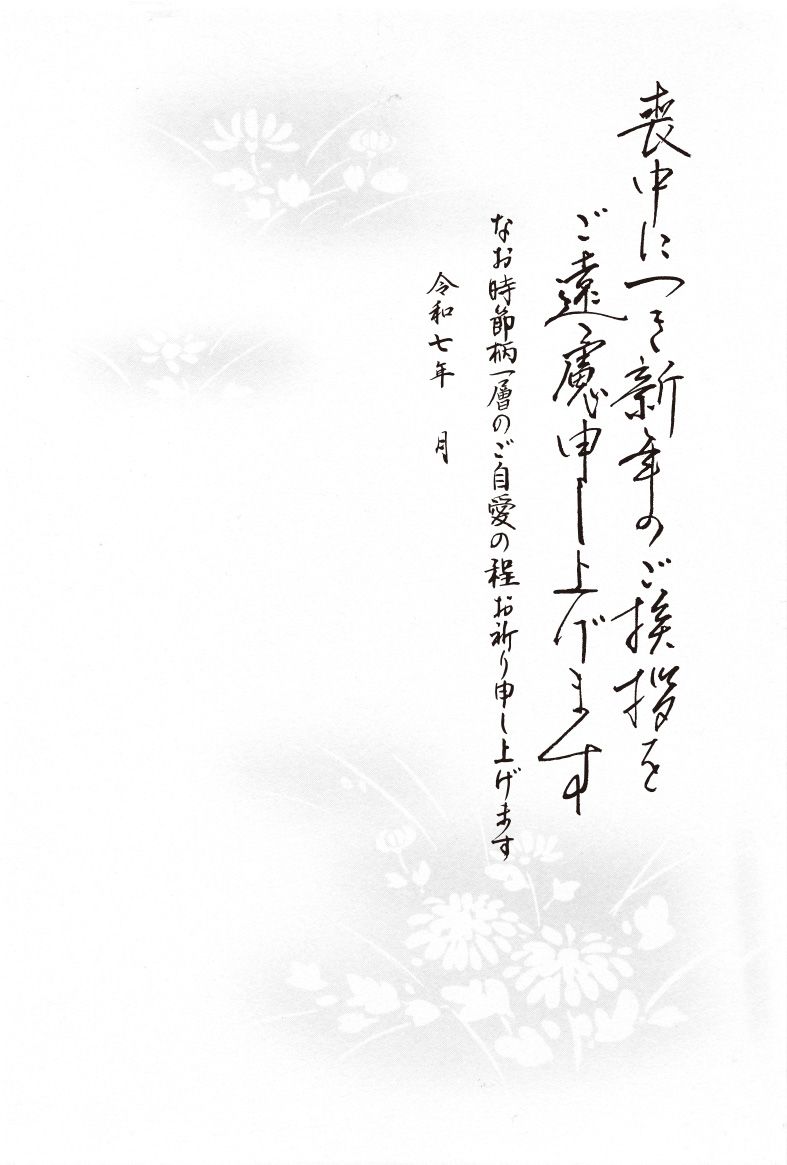 喪中につき新年のご挨拶を
ご遠慮申し上げます
なお時節柄一層のご自愛の程お祈り申し上げます
令和七年　月